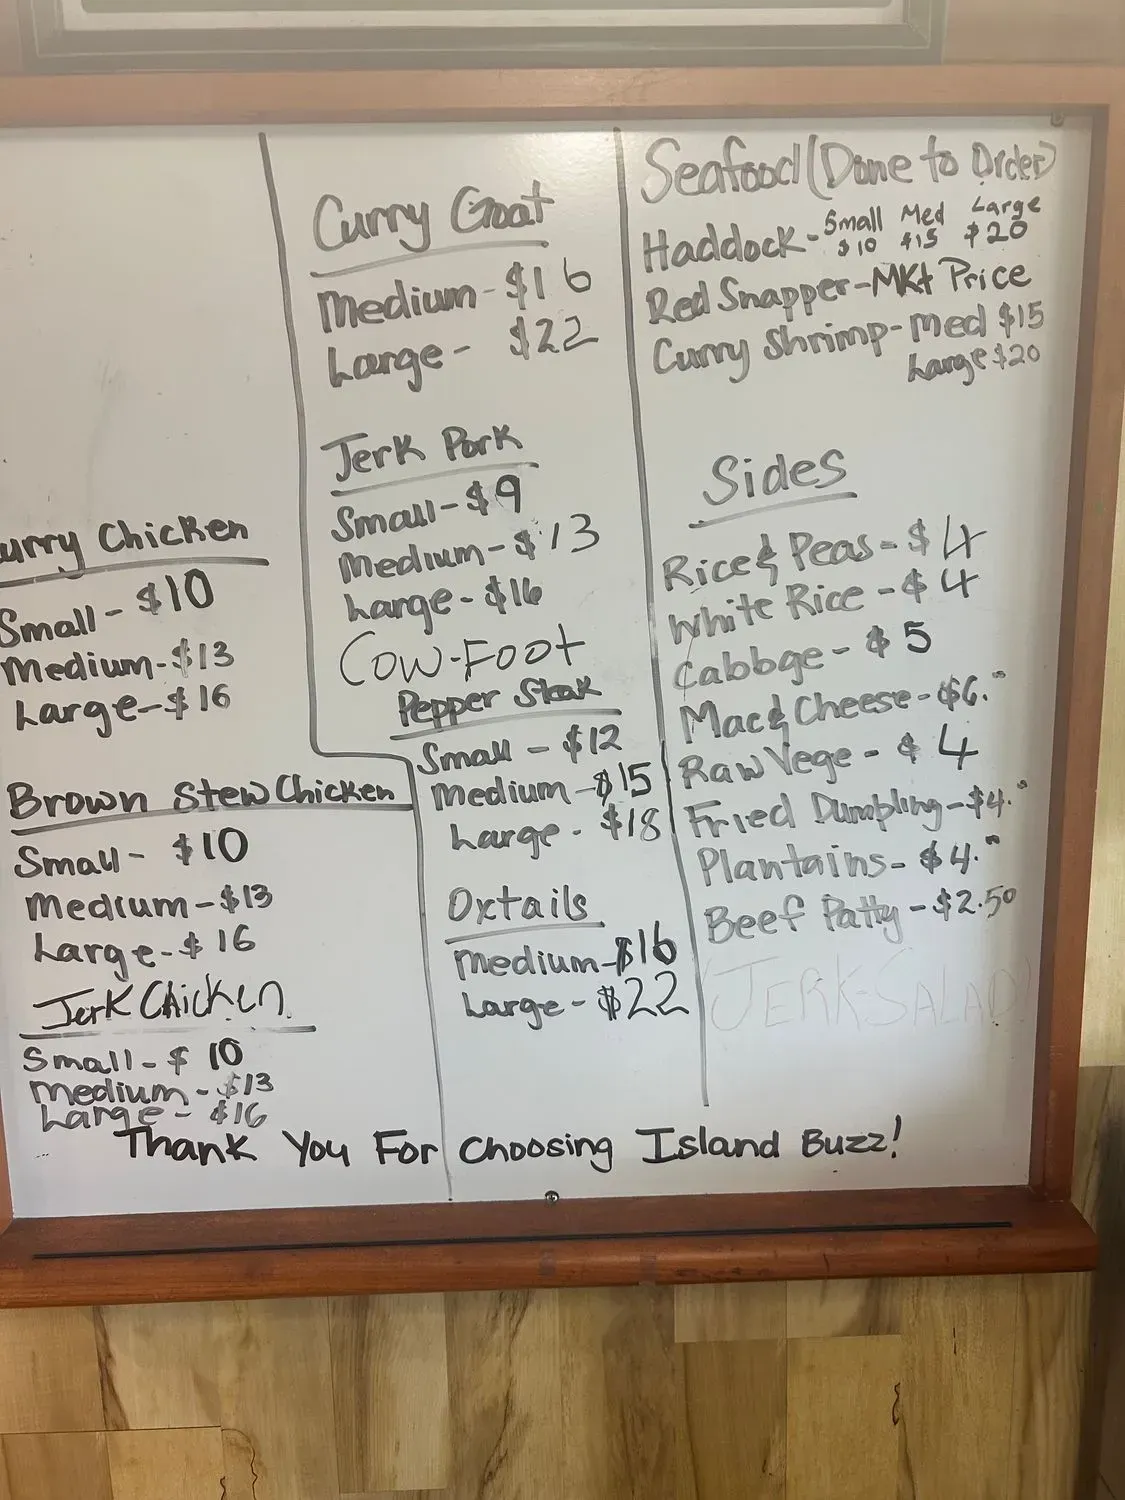 urry Chicken
Small - $10
Medium - $13
Large - $16
Brown Stew Chicken
Small - $10
Medium - $13
Large - $16
Jerk Chicken
Small - $10
Medium - $13
Large - $16
Curry Goat
Medium - $16
Large - $22
Jerk Pork
Small - $9
Medium - $13
Large - $16
Cow-Foot
Pepper Steak
Small - $12
Medium - $15
Large - $18
Oxtails
Medium - $16
Large - $22
Seafood (Done to Order)
Small Med Large
Haddock - $10 $15 $20
Red Snapper - MKt Price
Curry Shrimp - Med $15
Large $20
Sides
Rice & Peas - $4
White Rice - $4
Cabbge - $5
Mac & Cheese - $6."
Raw Vege - $4
Fried Dumpling - $4."
Plantains - $4."
Beef Patty - $2.50
(JERK-SALAD!
Thank You For Choosing Island Buzz!